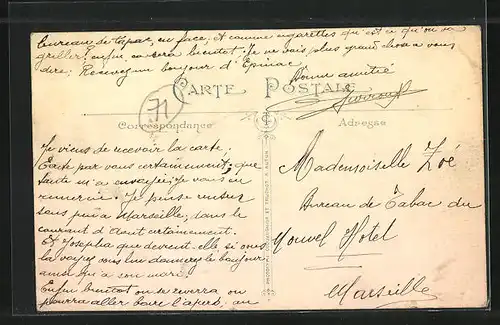 bureau de tabac, en face, et comme cigarettes qu'est ce qu'on va
griller! enfin ce sera bientot. Je ne vois plus grand chose a vous
dire. Recevez un bonjour d'Epinac
Bonne amitié
71
CARTE POSTALE
Correspondance
Adresse
Je viens de recevoir la carte,
Carte par vous certainement, que
m'a envoyée, je vous en
remercie. Je pense rentrer
sous peu a Marseille, dans le
courant d'Aout certainement.
Et Josepha que devient elle, si vous
la voyez vous lui donnerez le bonjour
ainsi qu'a son mari.
Enfin bientot on se reverra on
pourra aller boire l'apero, au
Mademoiselle Zoé
Bureau de Tabac du
Nouvel Hotel
Marseille